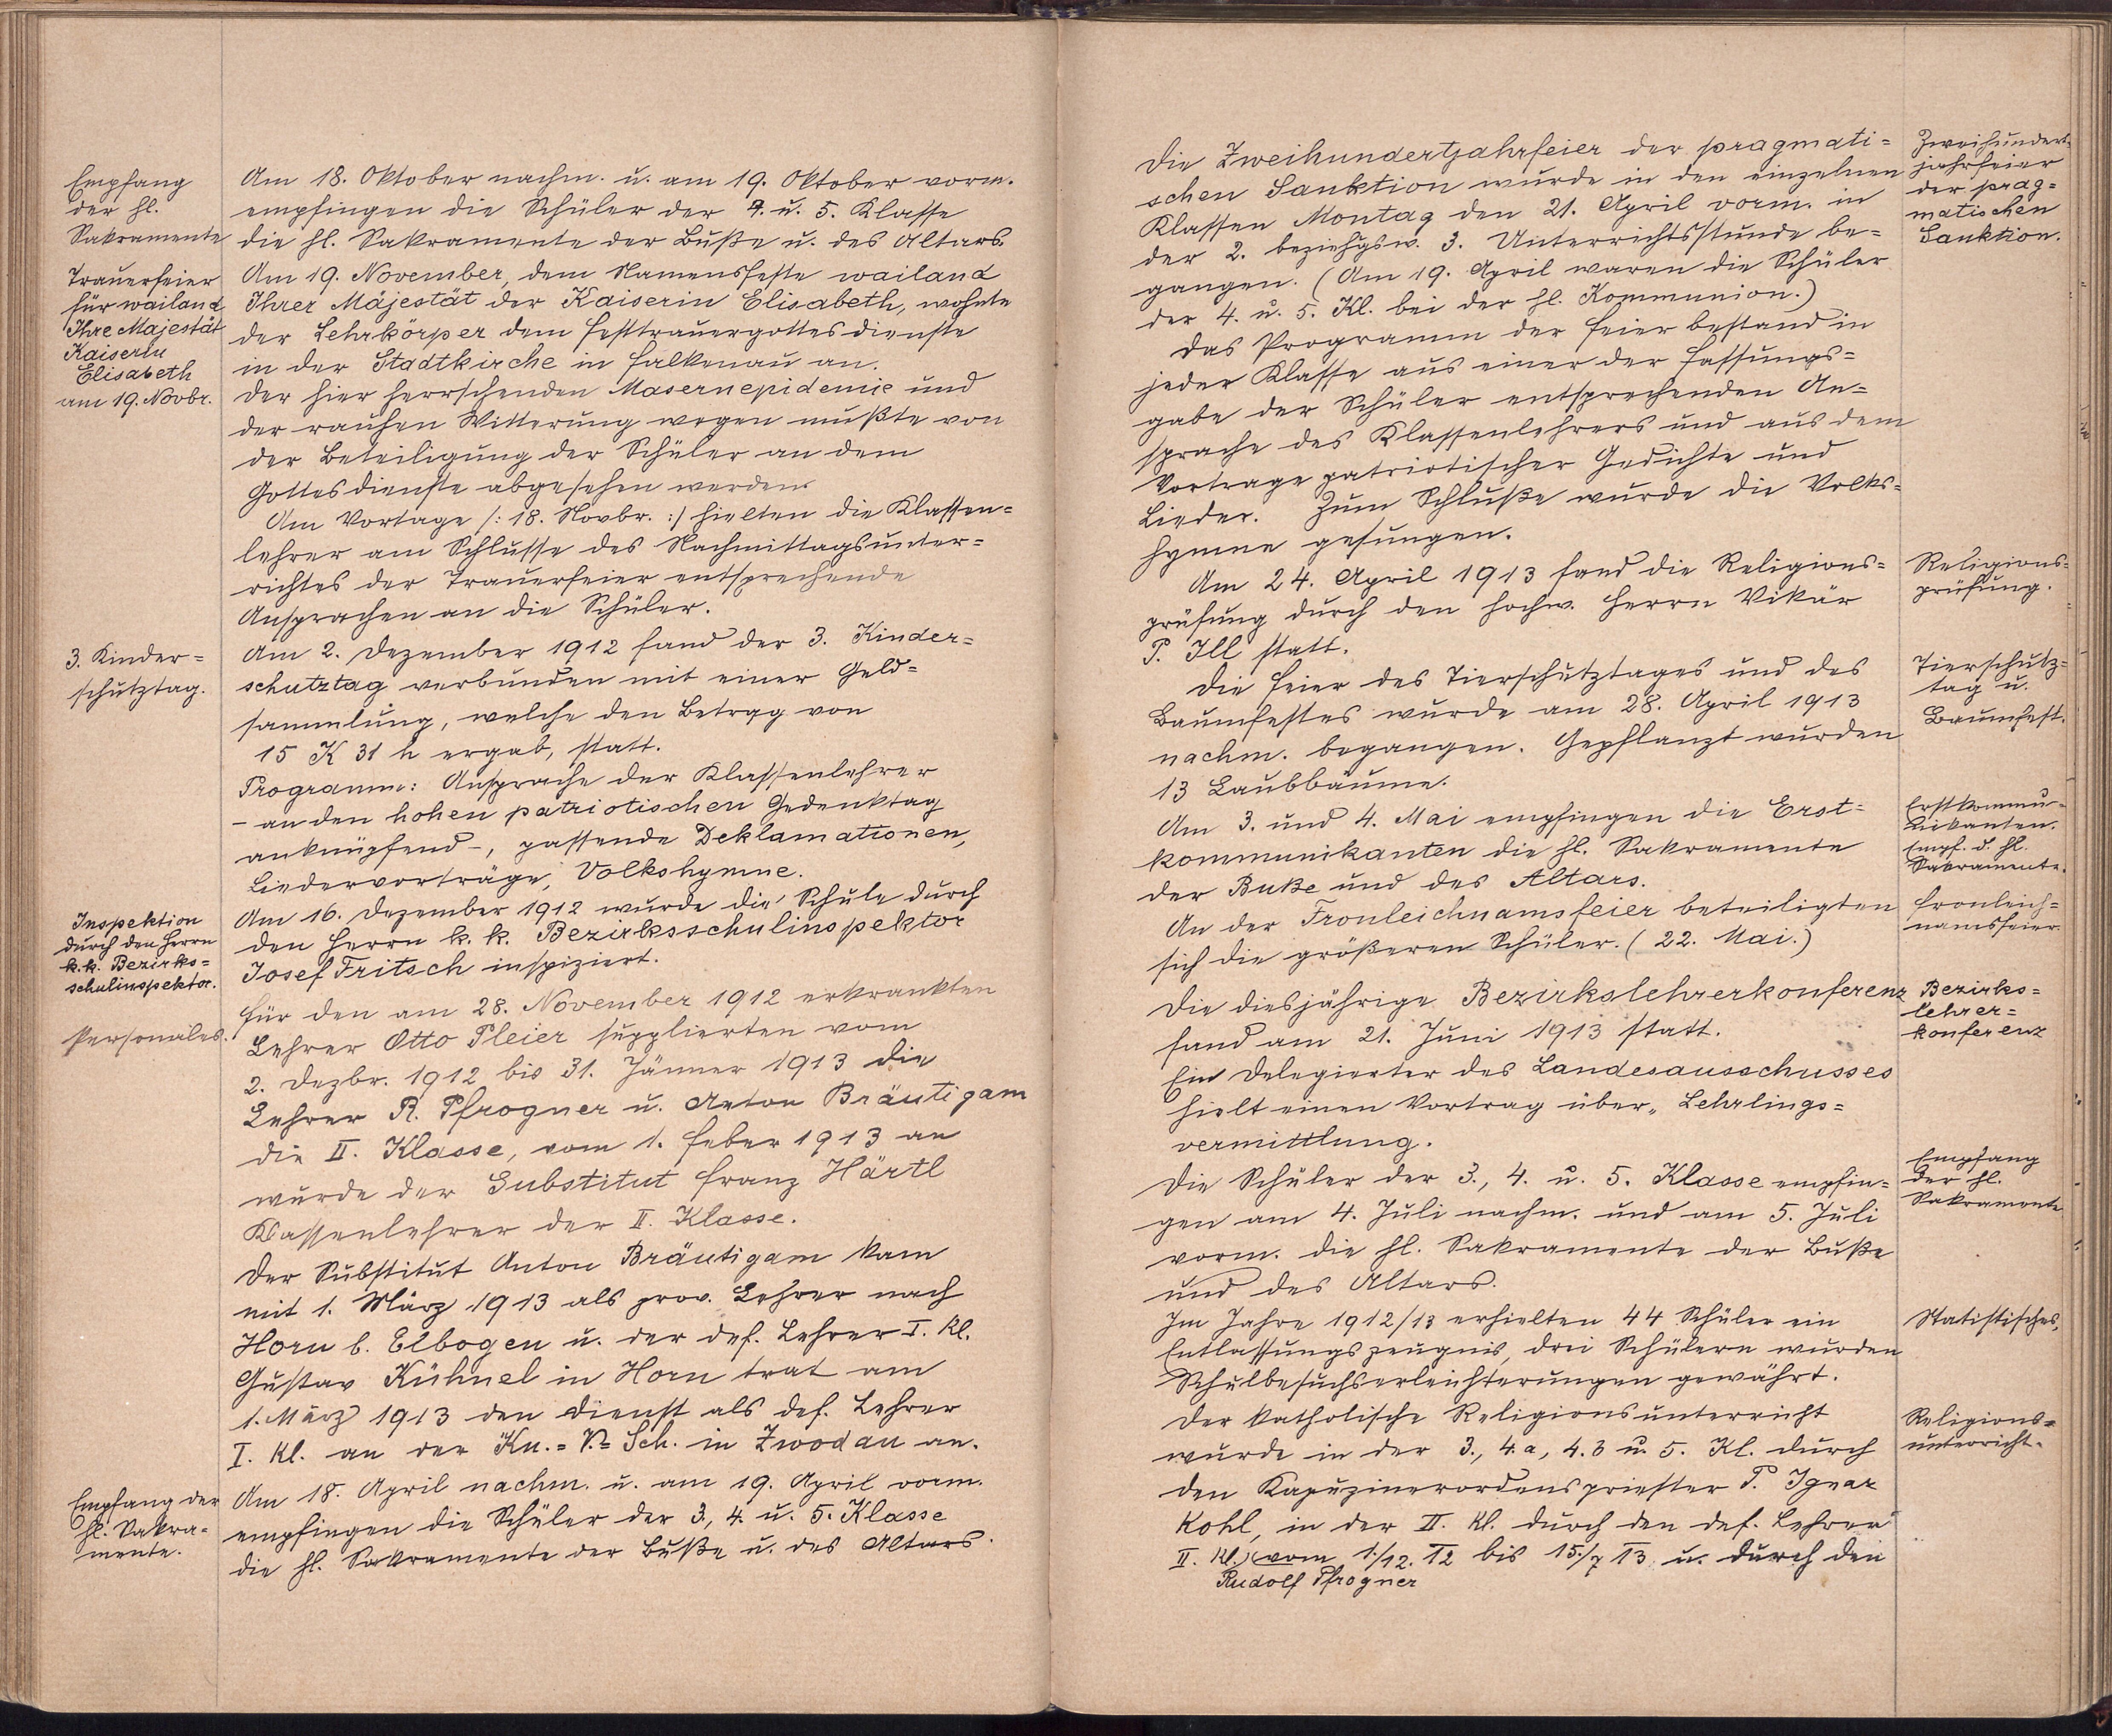 Empfang
der hl.
Sakramente
Am 18. Oktober nachm. u. am 19. Oktober vorm.
empfingen die Schüler der 4. u. 5. Klasse
die hl. Sakramente der Buße u. des Altars.
Trauerfeier
für wailand
Ihre Majestät
Kaiserin
Elisabeth
am 19. Novbr.
Am 19. November, dem Namensfeste wailand
Ihrer Majestät der Kaiserin Elisabeth, wohnte
der Lehrkörper dem Festtrauergottesdienste
in der Stadtkirche in Falkenau an.
Der hier herrschenden Masernepidemie und
der rauhen Witterung wegen mußte von
der Beteiligung der Schüler an dem
Gottesdienste abgesehen werden.
Am Vortage /: 18. Novbr. :/ hielten die Klassen=
lehrer am Schlusse des Nachmittagsunter=
richtes der Trauerfeier entsprechende
Ansprachen an die Schüler.
3. Kinder=
schutztag.
Am 2. Dezember 1912 fand der 3. Kinder=
schutztag verbunden mit einer Geld=
sammlung, welche den Betrag von
15 K 31 h ergab, statt.
Programm: Ansprache der Klassenlehrer
– an den hohen patriotischen Gedenktag
anknüpfend –, passende Deklamationen,
Liedervorträge, Volkshymne.
Inspektion
durch den Herrn
k. k. Bezirks=
schulinspektor.
Am 16. Dezember 1912 wurde die Schule durch
den Herrn k. k. Bezirksschulinspektor
Josef Fritsch inspiziert.
Personales.
Für den am 28. November 1912 erkrankten
Lehrer Otto Pleier supplierten vom
2. Dezbr. 1912 bis 31. Jänner 1913 die
Lehrer R. Pfrogner u. Anton Bräutigam
die II. Klasse, vom 1. Feber 1913 an
wurde der Substitut Franz Härtl
Klassenlehrer der II. Klasse.
Der Substitut Anton Bräutigam kam
mit 1. März 1913 als prov. Lehrer nach
Horn b. Elbogen u. der def. Lehrer I. Kl.
Gustav Kühnel in Horn trat am
1. März 1913 den Dienst als def. Lehrer
I. Kl. an der Kn.=V.=Sch. in Zwodau an.
Empfang der
hl. Sakra=
mente.
Am 18. April nachm. u. am 19. April vorm.
empfingen die Schüler der 3., 4. u. 5. Klasse
die hl. Sakramente der Buße u. des Altars.
Die Zweihundertjahrfeier der pragmati=
schen Sanktion wurde in den einzelnen
Klassen Montag den 21. April vorm. in
der 2. beziehgsw. 3. Unterrichtsstunde be=
gangen. (Am 19. April waren die Schüler
der 4. u. 5. Kl. bei der hl. Kommunion.)
Das Programm der Feier bestand in
jeder Klasse aus einer der Fassungs=
gabe der Schüler entsprechenden An=
sprache des Klassenlehrers und aus dem
Vortrage patriotischer Gedichte und
Lieder. Zum Schluße wurde die Volks=
hymne gesungen.
Zweihundert=
jahrfeier
der prag=
matischen
Sanktion.
Am 24. April 1913 fand die Religions=
prüfung durch den hochw. Herrn Vikär
P. Ill statt.
Religions=
prüfung.
Die Feier des Tierschutztages und des
Baumfestes wurde am 28. April 1913
nachm. begangen. Gepflanzt wurden
13 Laubbäume.
Tierschutz=
tag u.
Baumfest.
Am 3. und 4. Mai empfingen die Erst=
kommunikanten die hl. Sakramente
der Buße und des Altars.
Erstkommu=
nikanten.
Empf. d. hl.
Sakramente.
An der Fronleichnamsfeier beteiligten
sich die größeren Schüler. (22. Mai.)
Fronleich=
namsfeier.
Die diesjährige Bezirkslehrerkonferenz
fand am 21. Juni 1913 statt.
Ein Delegierter des Landesausschusses
hielt einen Vortrag über „Lehrlings=
vermittlung.
Bezirks=
lehrer=
konferenz
Die Schüler der 3., 4. u. 5. Klasse empfin=
gen am 4. Juli nachm. und am 5. Juli
vorm. die hl. Sakramente der Buße
und des Altars.
Empfang
der hl.
Sakramente
Im Jahre 1912/13 erhielten 44 Schüler ein
Entlassungszeugnis, drei Schülern wurden
Schulbesuchserleichterungen gewährt.
Statistisches.
Der katholische Religionsunterricht
wurde in der 3., 4.a, 4.b u. 5. Kl. durch
den Kapuzinerordenspriester P. Ignaz
Kohl, in der II. Kl. durch den def. Lehrer
II. Kl. vom 1./12. 12 bis 15./7 13 u. durch den
Rudolf Pfrogner
Religions=
unterricht.